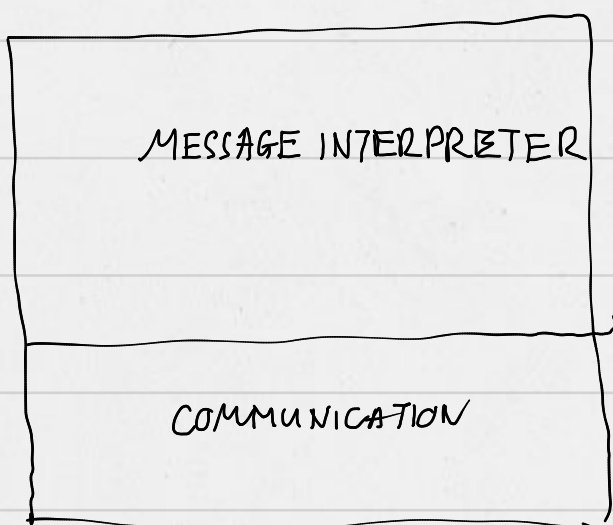 MESSAGE INTERPRETER
COMMUNICATION